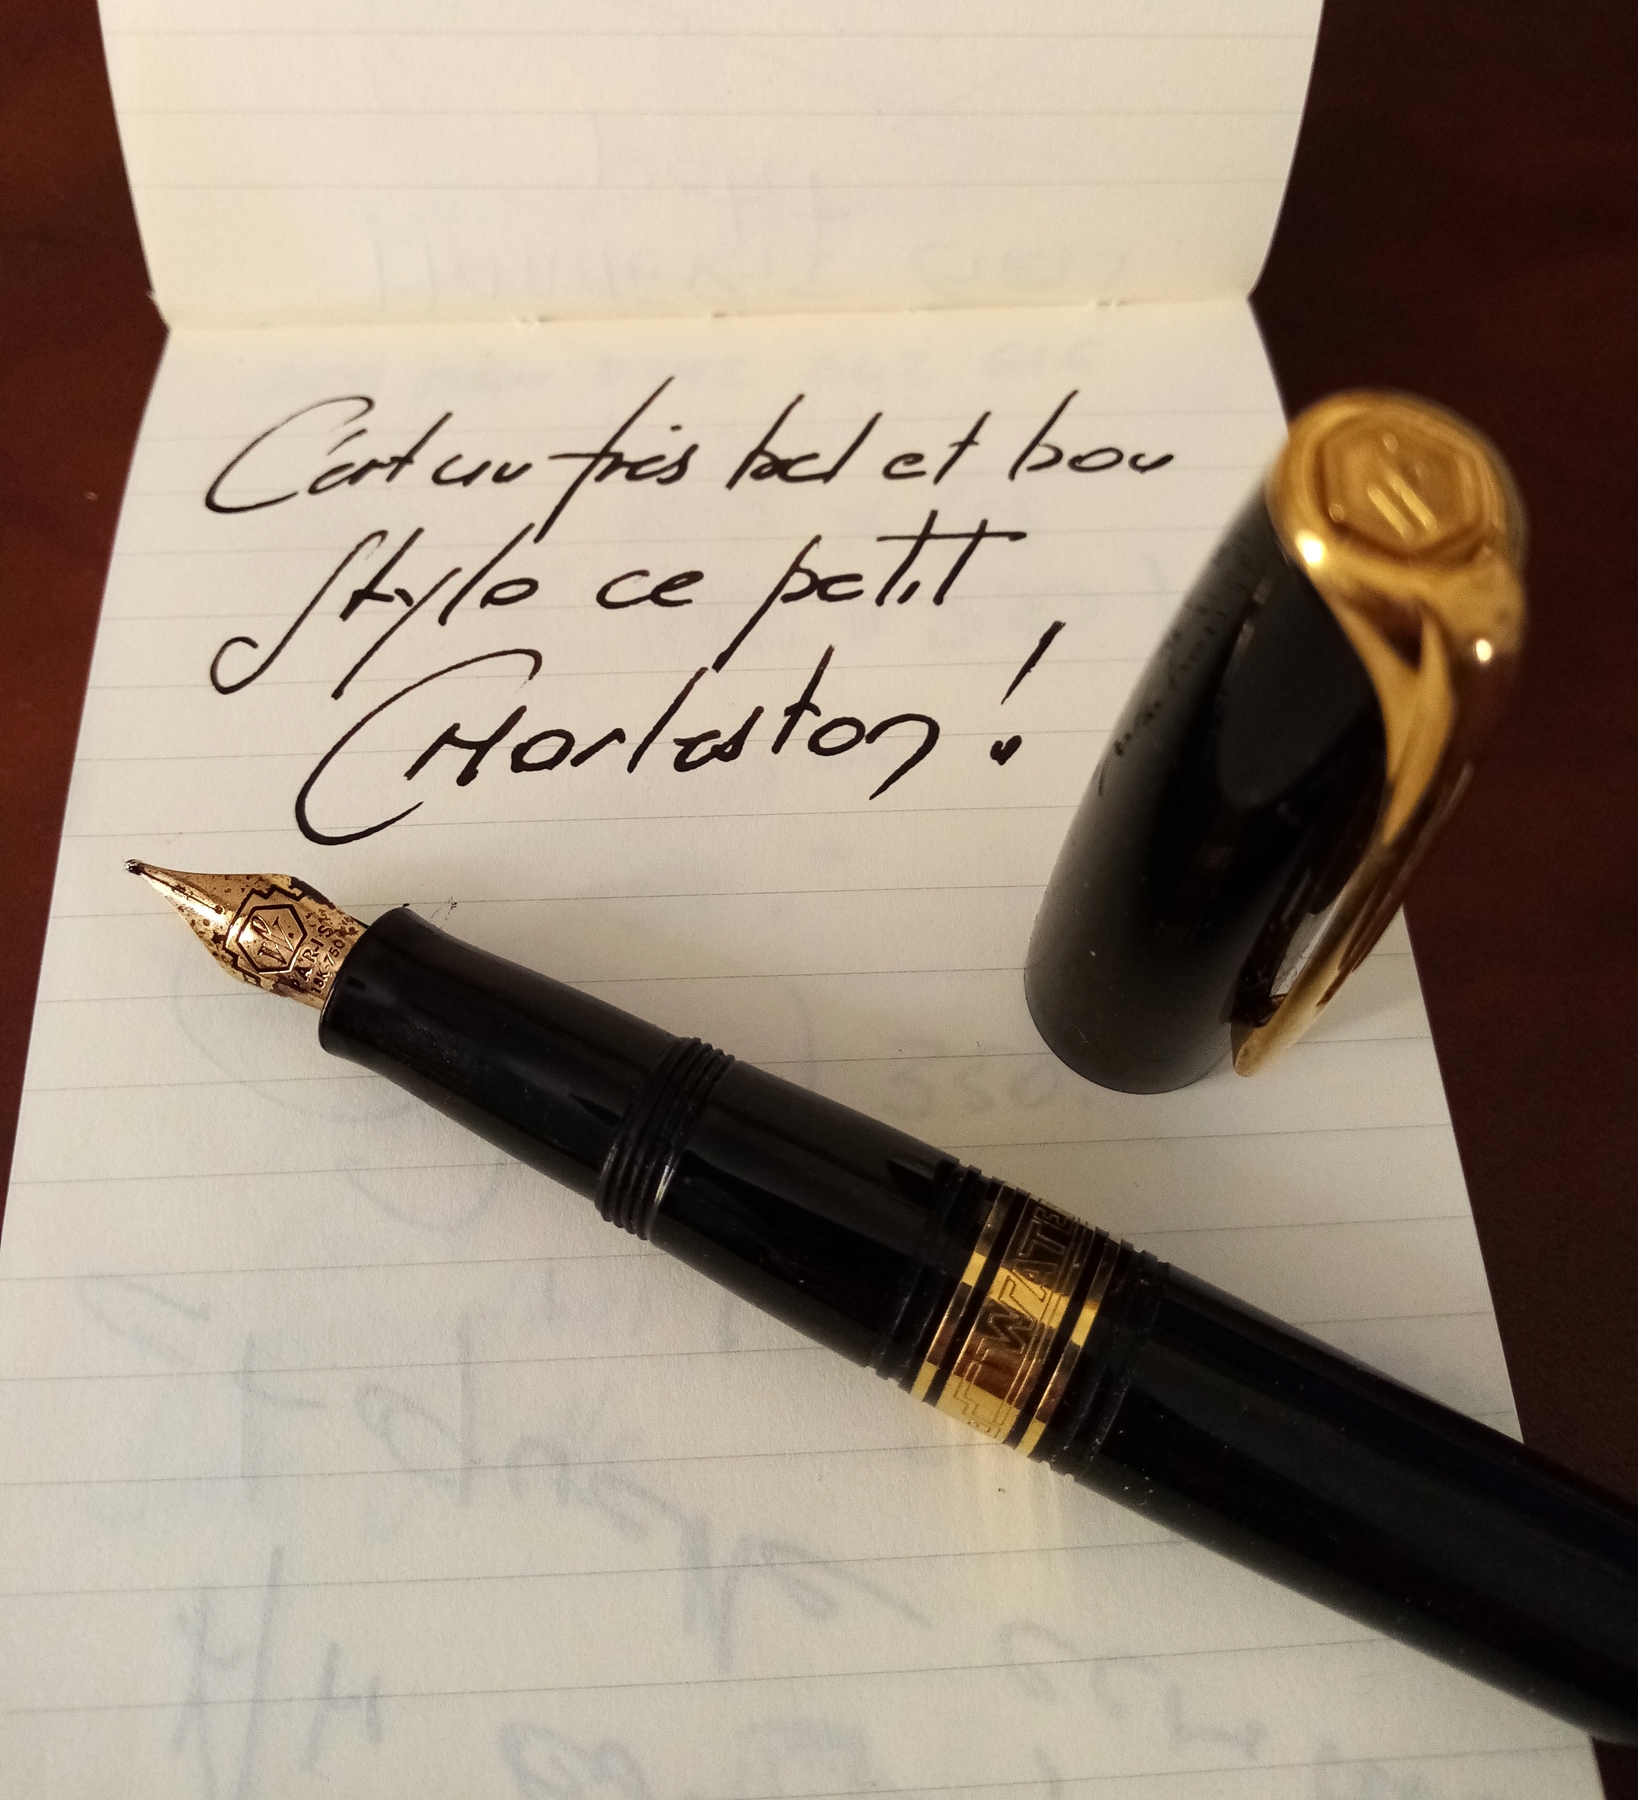 C'est un très bel et bon
stylo ce petit
CHarleston !
W
PARIS
18K-750
WATE